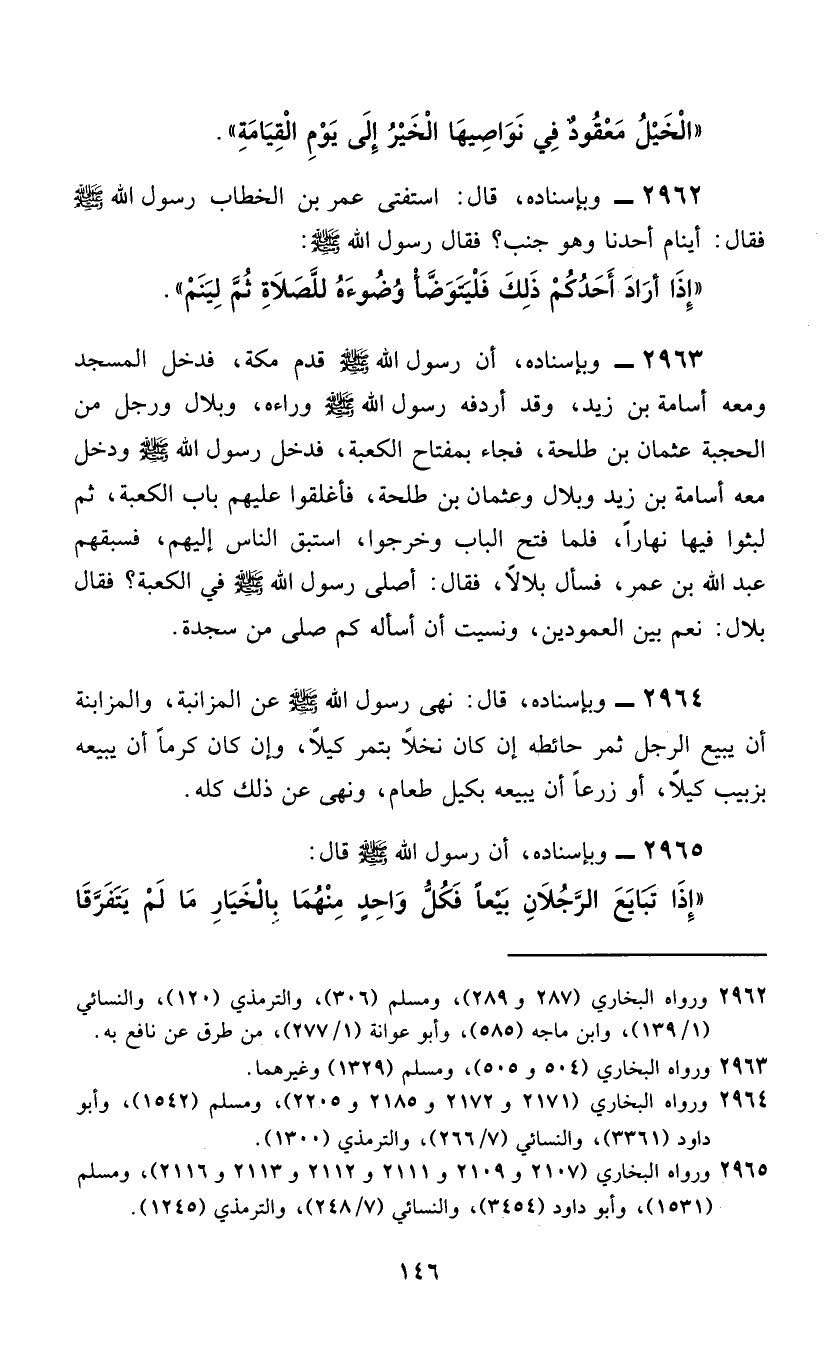 «الْخَيْلُ مَعْقُودٌ فِي نَوَاصِيهَا الْخَيْرُ إِلَى يَوْمِ الْقِيَامَةِ».
٢٩٦٢ ـ وبإسناده، قال: استفتى عمر بن الخطاب رسول الله ﷺ
فقال: أينام أحدنا وهو جنب؟ فقال رسول الله ﷺ:
«إِذَا أرَادَ أَحَدُكُمْ ذَلِكَ فَلْيَتَوَضَّأْ وُضُوءَهُ للصَّلَاةِ ثُمَّ لِيَنَمْ».
٢٩٦٣ ـ وبإسناده، أن رسول الله ﷺ قدم مكة، فدخل المسجد
ومعه أسامة بن زيد، وقد أردفه رسول الله ﷺ وراءه، وبلال ورجل من
الحجبة عثمان بن طلحة، فجاء بمفتاح الكعبة، فدخل رسول الله ﷺ ودخل
معه أسامة بن زيد وبلال وعثمان بن طلحة، فأغلقوا عليهم باب الكعبة، ثم
لبثوا فيها نهاراً، فلما فتح الباب وخرجوا، استبق الناس إليهم، فسبقهم
عبد الله بن عمر، فسأل بلالاً، فقال: أصلى رسول الله ﷺ في الكعبة؟ فقال
بلال: نعم بين العمودين، ونسيت أن أسأله كم صلى من سجدة.
٢٩٦٤ ـ وبإسناده، قال: نهى رسول الله ﷺ عن المزانبة، والمزابنة
أن يبيع الرجل ثمر حائطه إن كان نخلاً بتمر كيلاً، وإن كان كرماً أن يبيعه
بزبيب كيلاً، أو زرعاً أن يبيعه بكيل طعام، ونهى عن ذلك كله.
٢٩٦٥ ـ وبإسناده، أن رسول الله ﷺ قال:
«إِذَا تَبَايَعَ الرَّجُلَانِ بَيْعاً فَكُلُّ وَاحِدٍ مِنْهُمَا بِالْخَيَارِ مَا لَمْ يَتَفَرَّقَا
٢٩٦٢ ورواه البخاري (٢٨٧ و ٢٨٩)، ومسلم (٣٠٦)، والترمذي (١٢٠)، والنسائي
(١/١٣٩)، وابن ماجه (٥٨٥)، وأبو عوانة (١/٢٧٧)، من طرق عن نافع به.
٢٩٦٣ ورواه البخاري (٥٠٤ و ٥٠٥)، ومسلم (١٣٢٩) وغيرهما.
٢٩٦٤ ورواه البخاري (٢١٧١ و ٢١٧٢ و ٢١٨٥ و ٢٢٠٥)، ومسلم (١٥٤٢)، وأبو
داود (٣٣٦١)، والنسائي (٧/٢٦٦)، والترمذي (١٣٠٠).
٢٩٦٥ ورواه البخاري (٢١٠٧ و ٢١٠٩ و ٢١١١ و ٢١١٢ و ٢١١٣ و ٢١١٦)، ومسلم
(١٥٣١)، وأبو داود (٣٤٥٤)، والنسائي (٧/٢٤٨)، والترمذي (١٢٤٥).
١٤٦